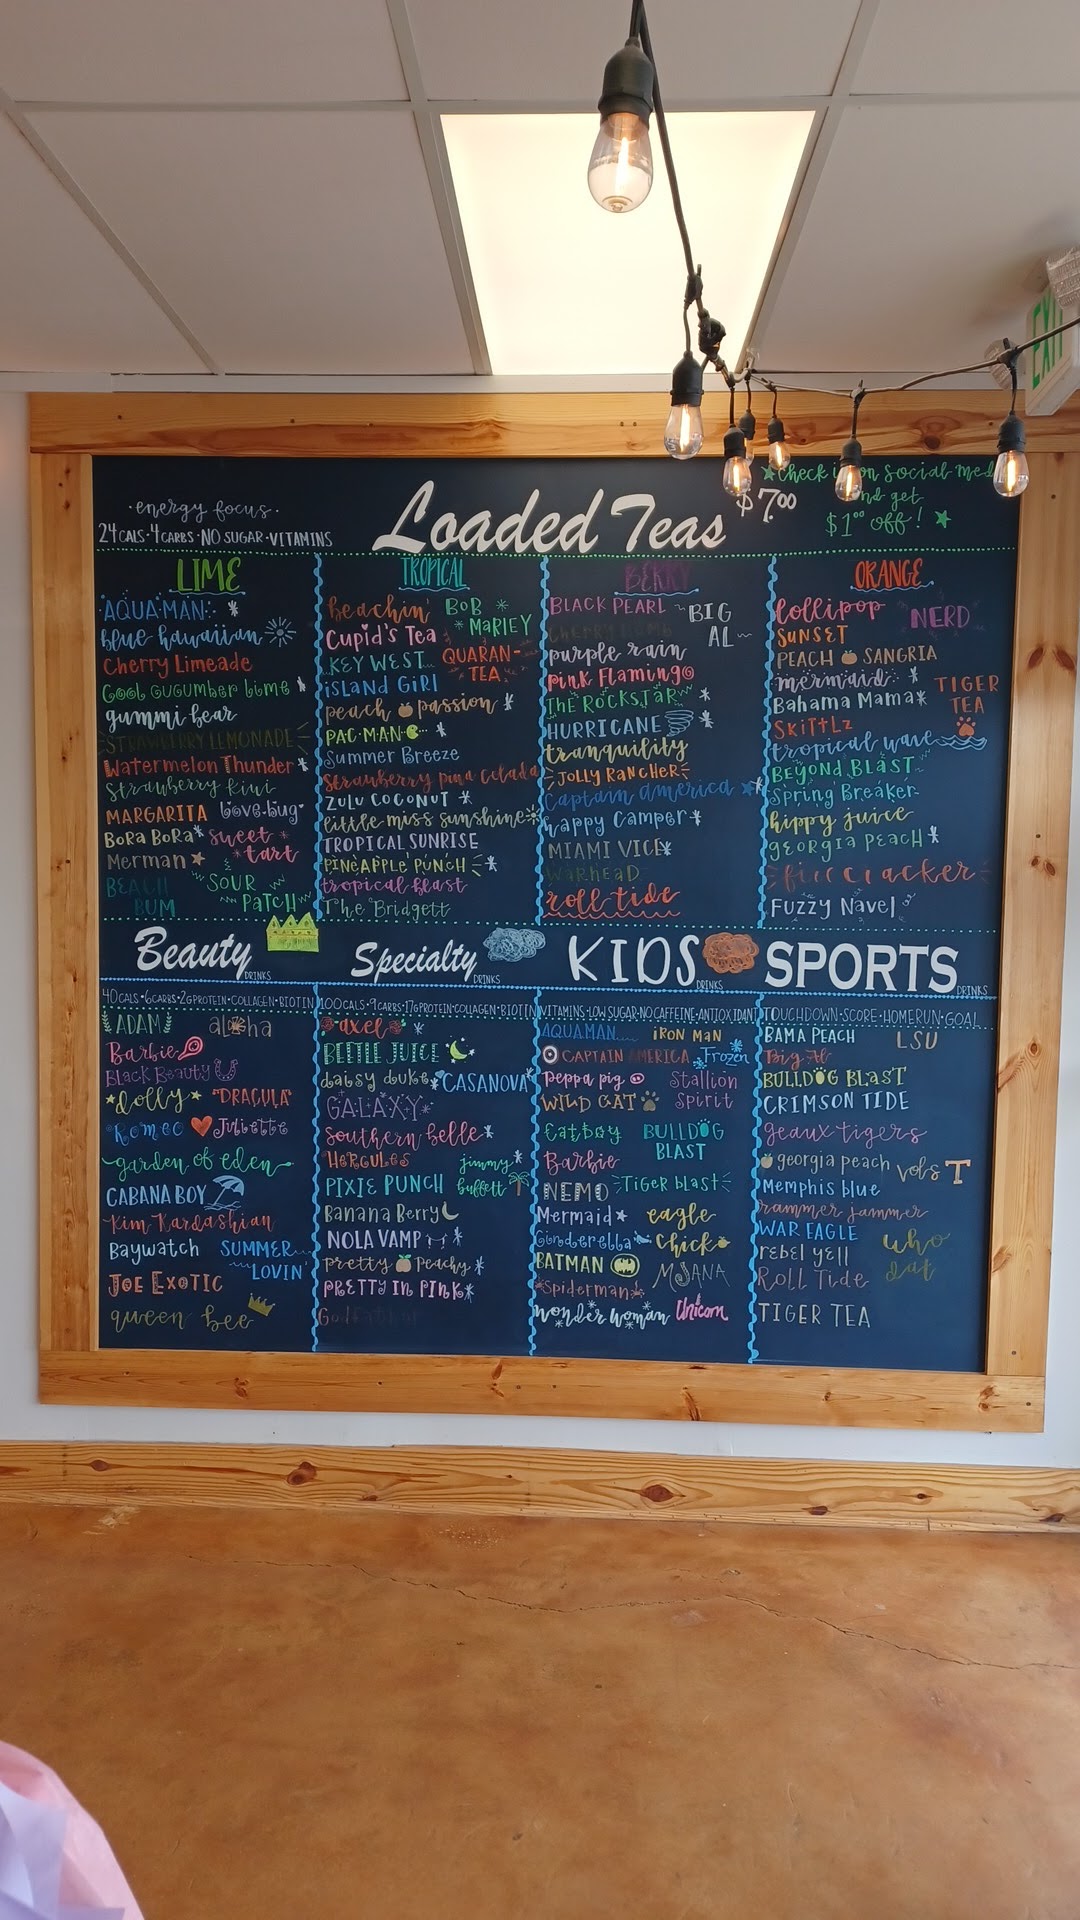 EXIT
check in on social med
and get
$1.00 off!
$7.00
Loaded Teas
energy focus
24 CALS · 4 CARBS · NO SUGAR · VITAMINS
LIME
AQUAMAN
blue hawaiian
Cherry Limeade
Cool Cucumber Lime
gummi bear
STRAWBERRY LEMONADE
Watermelon Thunder
Strawberry Kiwi
MARGARITA Love-bug
BORA BORA sweet tart
Merman
BEACH BUM SOUR PATCH
TROPICAL
beachin' BOB MARLEY
Cupid's Tea
KEY WEST QUARAN-TEA
ISLAND GIRL
peach passion
PAC-MAN
Summer Breeze
Strawberry pina colada
ZULU COCONUT
little miss sunshine
TROPICAL SUNRISE
PINEAPPLE PUNCH
tropical blast
The Bridgett
BERRY
BLACK PEARL BIG AL
CHERRY BOMB
purple rain
Pink Flamingo
THE ROCKSTAR
HURRICANE
tranquility
JOLLY RANCHER
Captain America
happy Camper
MIAMI VICE
WARHEAD
roll tide
ORANGE
lollipop NERD
SUNSET
PEACH SANGRIA
mermaid TIGER TEA
Bahama Mama
SKITTLZ
tropical wave
BEYOND BLAST
Spring Breaker
hippy juice
GEORGIA PEACH
firecracker
FUZZY NAVEL
Beauty DRINKS
Specialty DRINKS
KIDS DRINKS
SPORTS DRINKS
40 CALS · 6 CARBS · 2G PROTEIN · COLLAGEN · BIOTIN
ADAM aloha
Barbie
Black Beauty
dolly "DRACULA"
Romeo Juliette
garden of eden
CABANA BOY
Kim Kardashian
Baywatch SUMMER LOVIN'
JOE EXOTIC
queen bee
100 CALS · 9 CARBS · 17G PROTEIN · COLLAGEN · BIOTIN
axel
BEETLE JUICE
daisy duke CASANOVA
GALAXY
Southern belle
HERCULES jimmy buffett
PIXIE PUNCH
Banana Berry
NOLA VAMP
pretty Peachy
PRETTY IN PINK
Godfather
VITAMINS · LOW SUGAR · NO CAFFEINE · ANTIOXIDANT
AQUAMAN IRON MAN
CAPTAIN AMERICA Frozen
Peppa pig Stallion Spirit
WILD CAT
Catboy BULLDOG BLAST
Barbie
NEMO Tiger blast
Mermaid eagle
Cinderella Chick
BATMAN MOANA
Spiderman
wonder woman Unicorn
TOUCHDOWN · SCORE · HOMERUN · GOAL
BAMA PEACH LSU
Big Al
BULLDOG BLAST
CRIMSON TIDE
geaux tigers
georgia peach vols T
Memphis blue
rammer jammer
WAR EAGLE who dat
rebel yell
ROLL TIDE
TIGER TEA